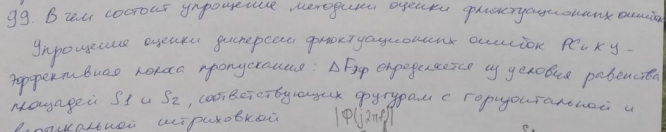 99. В чем состоит упрощение методики оценки флюктуационных ошибок
Упрощение оценки дисперсии флюктуационных ошибок РС и КУ -
эффективная полоса пропускания: ΔFэф определяется из условия равенства
площадей S1 и S2, соответствующих фигурам с горизонтальной и
вертикальной штриховкой |Φ(j2πf)|